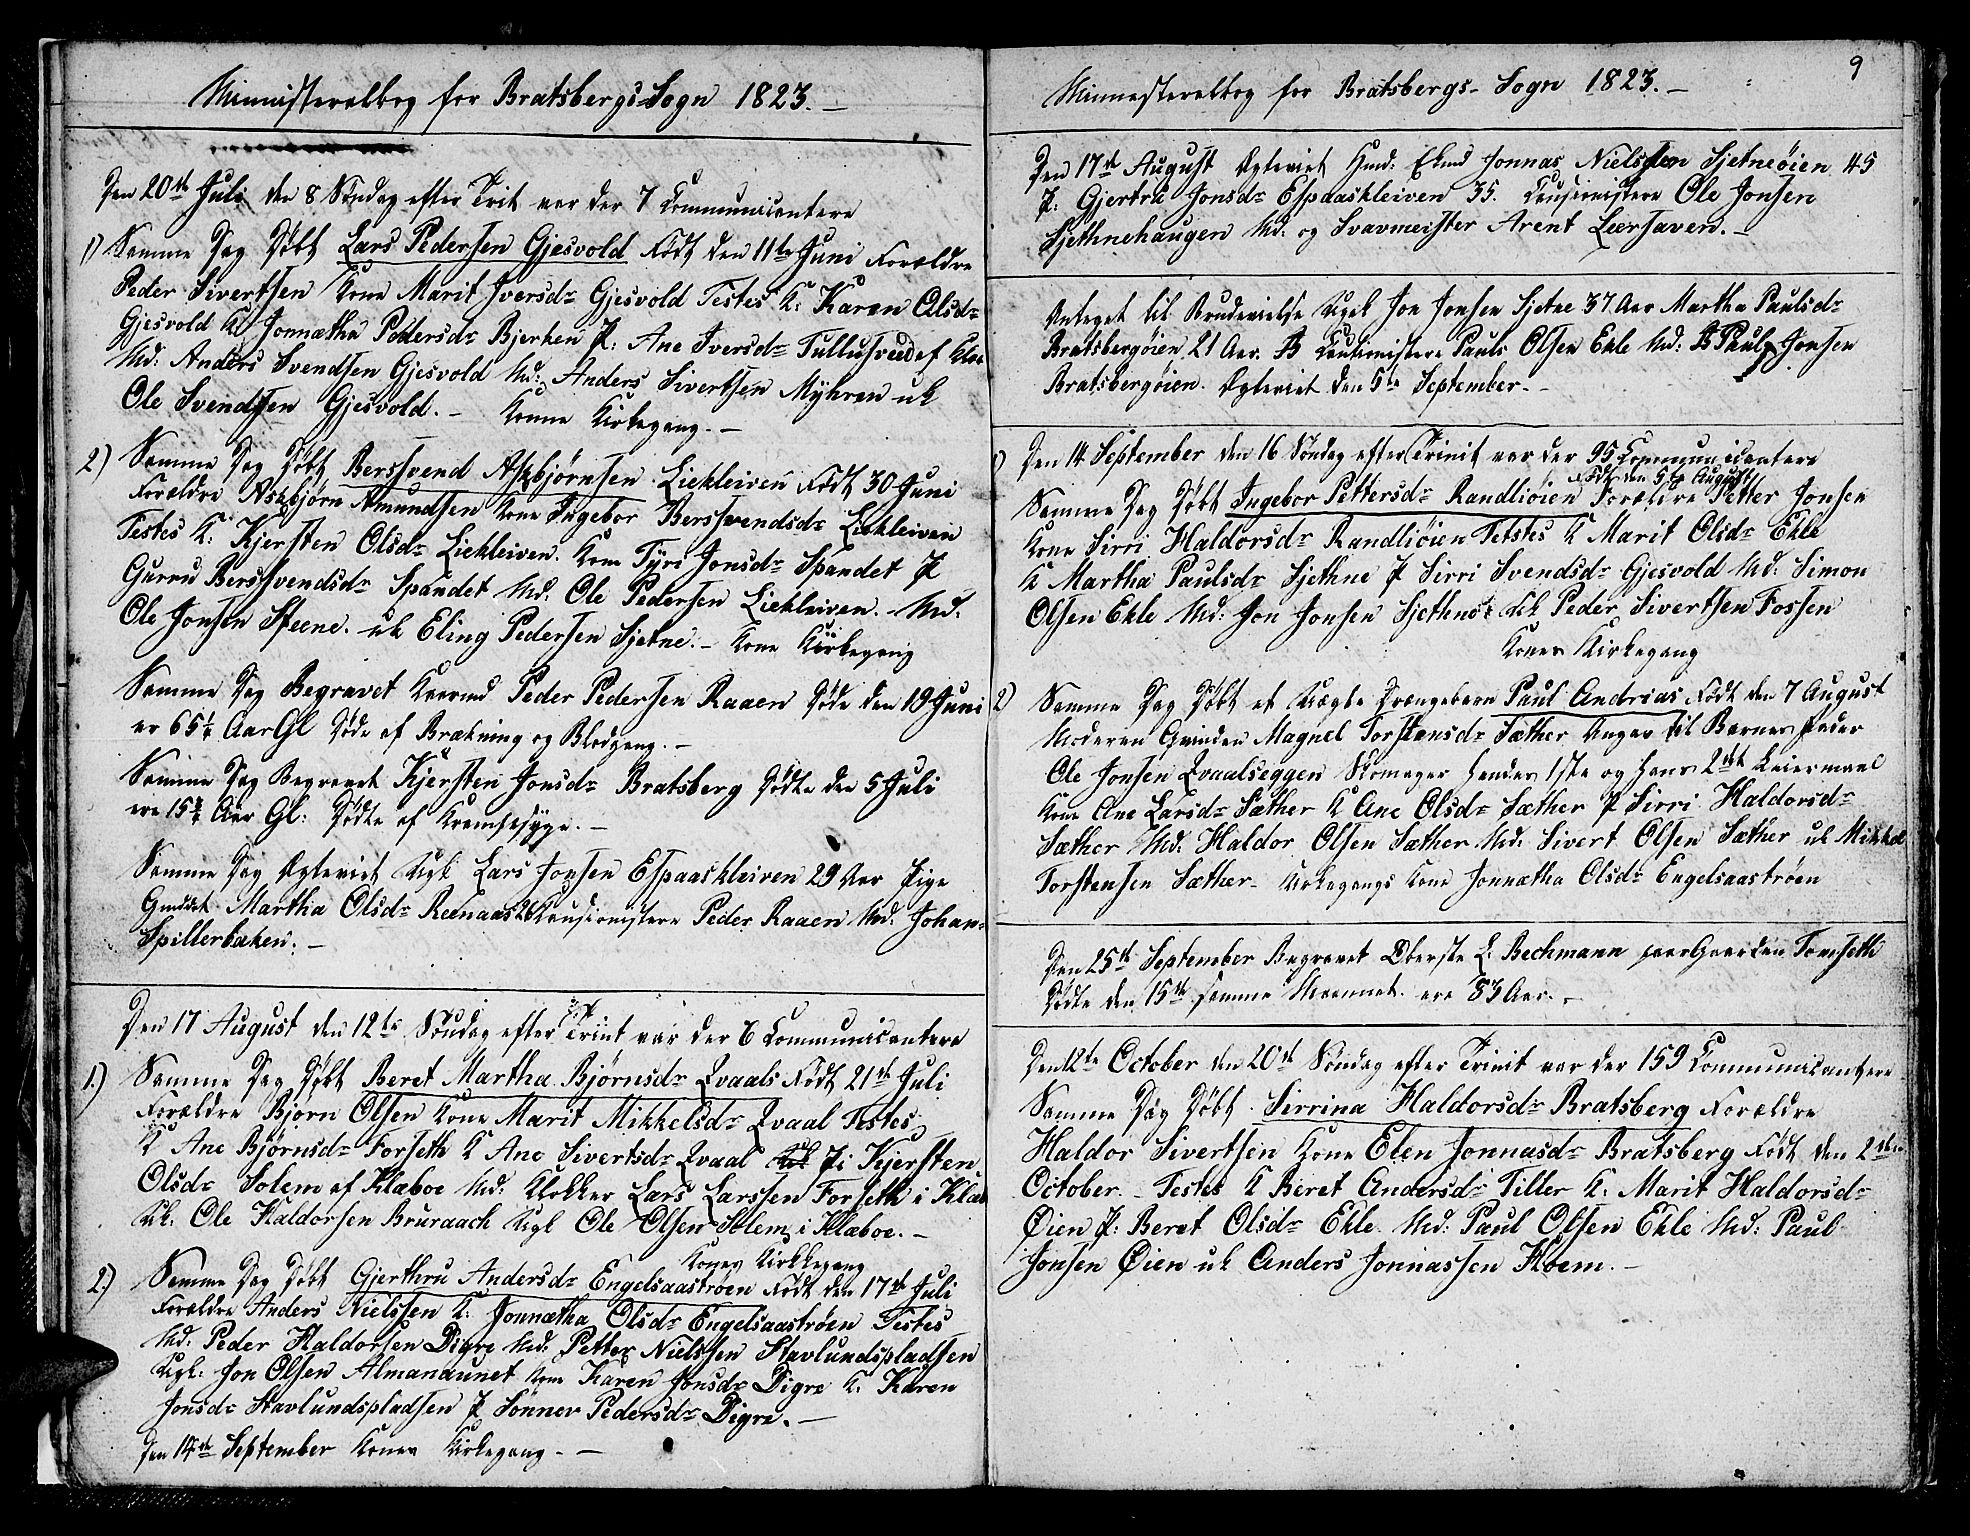 Ministeralbog for Bratsbergs Sogn 1823.
Den 20de Juli den 8 Søndag efter Trit var der 7 Communicantere
1) Samme Dag Døbt Lars Pedersen Gjesvold Født den 11te Juni Forældre
Peder Sivertsen Kone Marit Iversdr Gjesvold Testes K: Karen Olsdr
Gjesvold K Jonnætha Pedersdr Bjerken P: Ane Iversdr Tullusveed af Klæ
Md: Anders Svendsen Gjesvold Md: Anders Sivertsen Myhren uk
Ole Svendsen Gjesvold. – Konne Kirkegang. –
2) Samme Dag Døbt Berssvend Askbjørnsen Liekleiven Født 30 Juni
Forældre Askbjørn Amundsen Kone Ingebor Berssvendsdr Liekleiven
Testes K: Kjersten Olsdr Liekleiven. Kone Tyri Jonsdr Spandet P
Guruu Berssvendsdr Spandet Md. Ole Pedersen Liekleiven. – Md.
Ole Jonsen Steene. uk Eling Pedersen Sjetne. – Kone Kirkegang
Samme Dag Begravet Kaarmd Peder Pedersen Raaen Døde den 19 Juni
er 65½ Aar Gl Døde af Brækning og Blodgang. –
Samme Dag Begravet Kjersten Jonsdr Bratsberg Dødte den 5 Juli
ere 15¾ Aar Gl: Dødte af Krampesyge. –
Samme Dag Ægteviet Ugk Lars Jonsen Espaaskleiven 29 Aar Pige
Gudet Martha Olsdr Reenaas 26 Kausionistere Peder Raaen Md: Johan
Spillerbaken. –
Den 17 August den 12te Søndag efter Trint var der 6 Communicantere
1.) Samme Dag Døbt Beret Martha Bjørnsdr Qvaals Født 21de Juli
Forældre Bjørn Olsen Kone Marit Mikkelsdr Qvaal Testes
K Ane Bjørnsdr Forseth K Ane Sivertsdr Qvaal Pi Kjersten
Olsdr Solem af Klæboe Md: Klokker Lars Larssen Forseth i Klæb
Uk: Ole Haldorsen Bruraach Ugk Ole Olsen Solem i Klæboe. –
Kones Kirkegang
2.) Samme Dag Døbt Gjerthru Andersdr Engelsaastrøen Født den 17de Juli
Forældre Anders Nielssen K: Jonnætha Olsdr Engelsaastrøen Testes
Md: Peder Haldorsen Digre Md: Petter Nielssen Stavlundspladsen
Ugk: Jon Olsen Almanaunet Kone Karen Jonsdr Digre K: Karen
Jonsdr Stavlundspladsen P Sonnov Pedersdr Digre. –
Den 14de September Kones Kirkegang. –
9
Ministeralbog for Bratsbergs Sogn 1823. –
Den 17de August Ægteviet Ekmd Jonnas Nielssen Sjetneøien 45
P: Gjertru Jonsdr Espaaskleiven 35. Kausionistere Ole Jonsen
Sjethnehaugen Md: og Svavmeister Arent Leersaven. –
Antaget til Brudevielse Ugk Jon Jonsen Sjetne 37 Aar Martha Paulsdr
Bratsbergøien 21 Aar. Kautionistere Pauls Olsen Ekle Md: Paul Jonsen
Bratsbergøien. Ægteviet den 5te September. –
1) Den 14 September den 16 Søndag efter Trinit var der 95 Communicantere
Født den 5te August
Samme Dag Døbt Ingebor Pettersdr Randliøien Forældre Petter Jonsen
Kone Sirri Haldorsdr Randliøien Tetstes K Marit Olsdr Ekle
K Martha Paulsdr Sjethne P Sirri Svendsdr Gjesvold Md: Simon
Olsen Ekle Md: Jon Jonsen Sjethne Uk Peder Sivertsen Fossen
Kones Kirkegang
2) Samme Dag Døbt et Uægte Drængebarn Paul Andrias Født den 7 August
Moderen Qvinden Magnel Torstensdr Sæther Angav til Barnes Fader
Ole Jonsen Qvaalseggen Skomager hendes 1ste og hans 2det Leiermaal
Kone Ane Larsdr Sæther K Ane Olsdr Sæther P Sirri Haldorsdr
Sæther Md. Haldor Olsen Sæther Md. Sivert Olsen Sæther uk Mikkel
Torstensen Sæther – Kirkegangs Kone Jonnætha Olsdr Engelsaastrøen
Den 25de September Begravet Oberste L. Bechmann paa Gaarden Tomseth
Dødte den 15de samme Maanet. ere 83 Aar. –
Den 12te October den 20de Søndag efter Trinit var der 159 Communicantere
Samme Dag Døbt Sirrina Haldorsdr Bratsberg Forældre
Haldor Sivertsen Kone Elen Jonnasdr Bratsberg Født den 2den
October. – Testes K Beret Andersdr Tiller K: Marit Haldorsdr
Øien P: Beret Olsdr Ekle Md: Paul Olsen Ekle Md: Paul
Jonsen Øien uk Anders Jonnassen Hoem. –